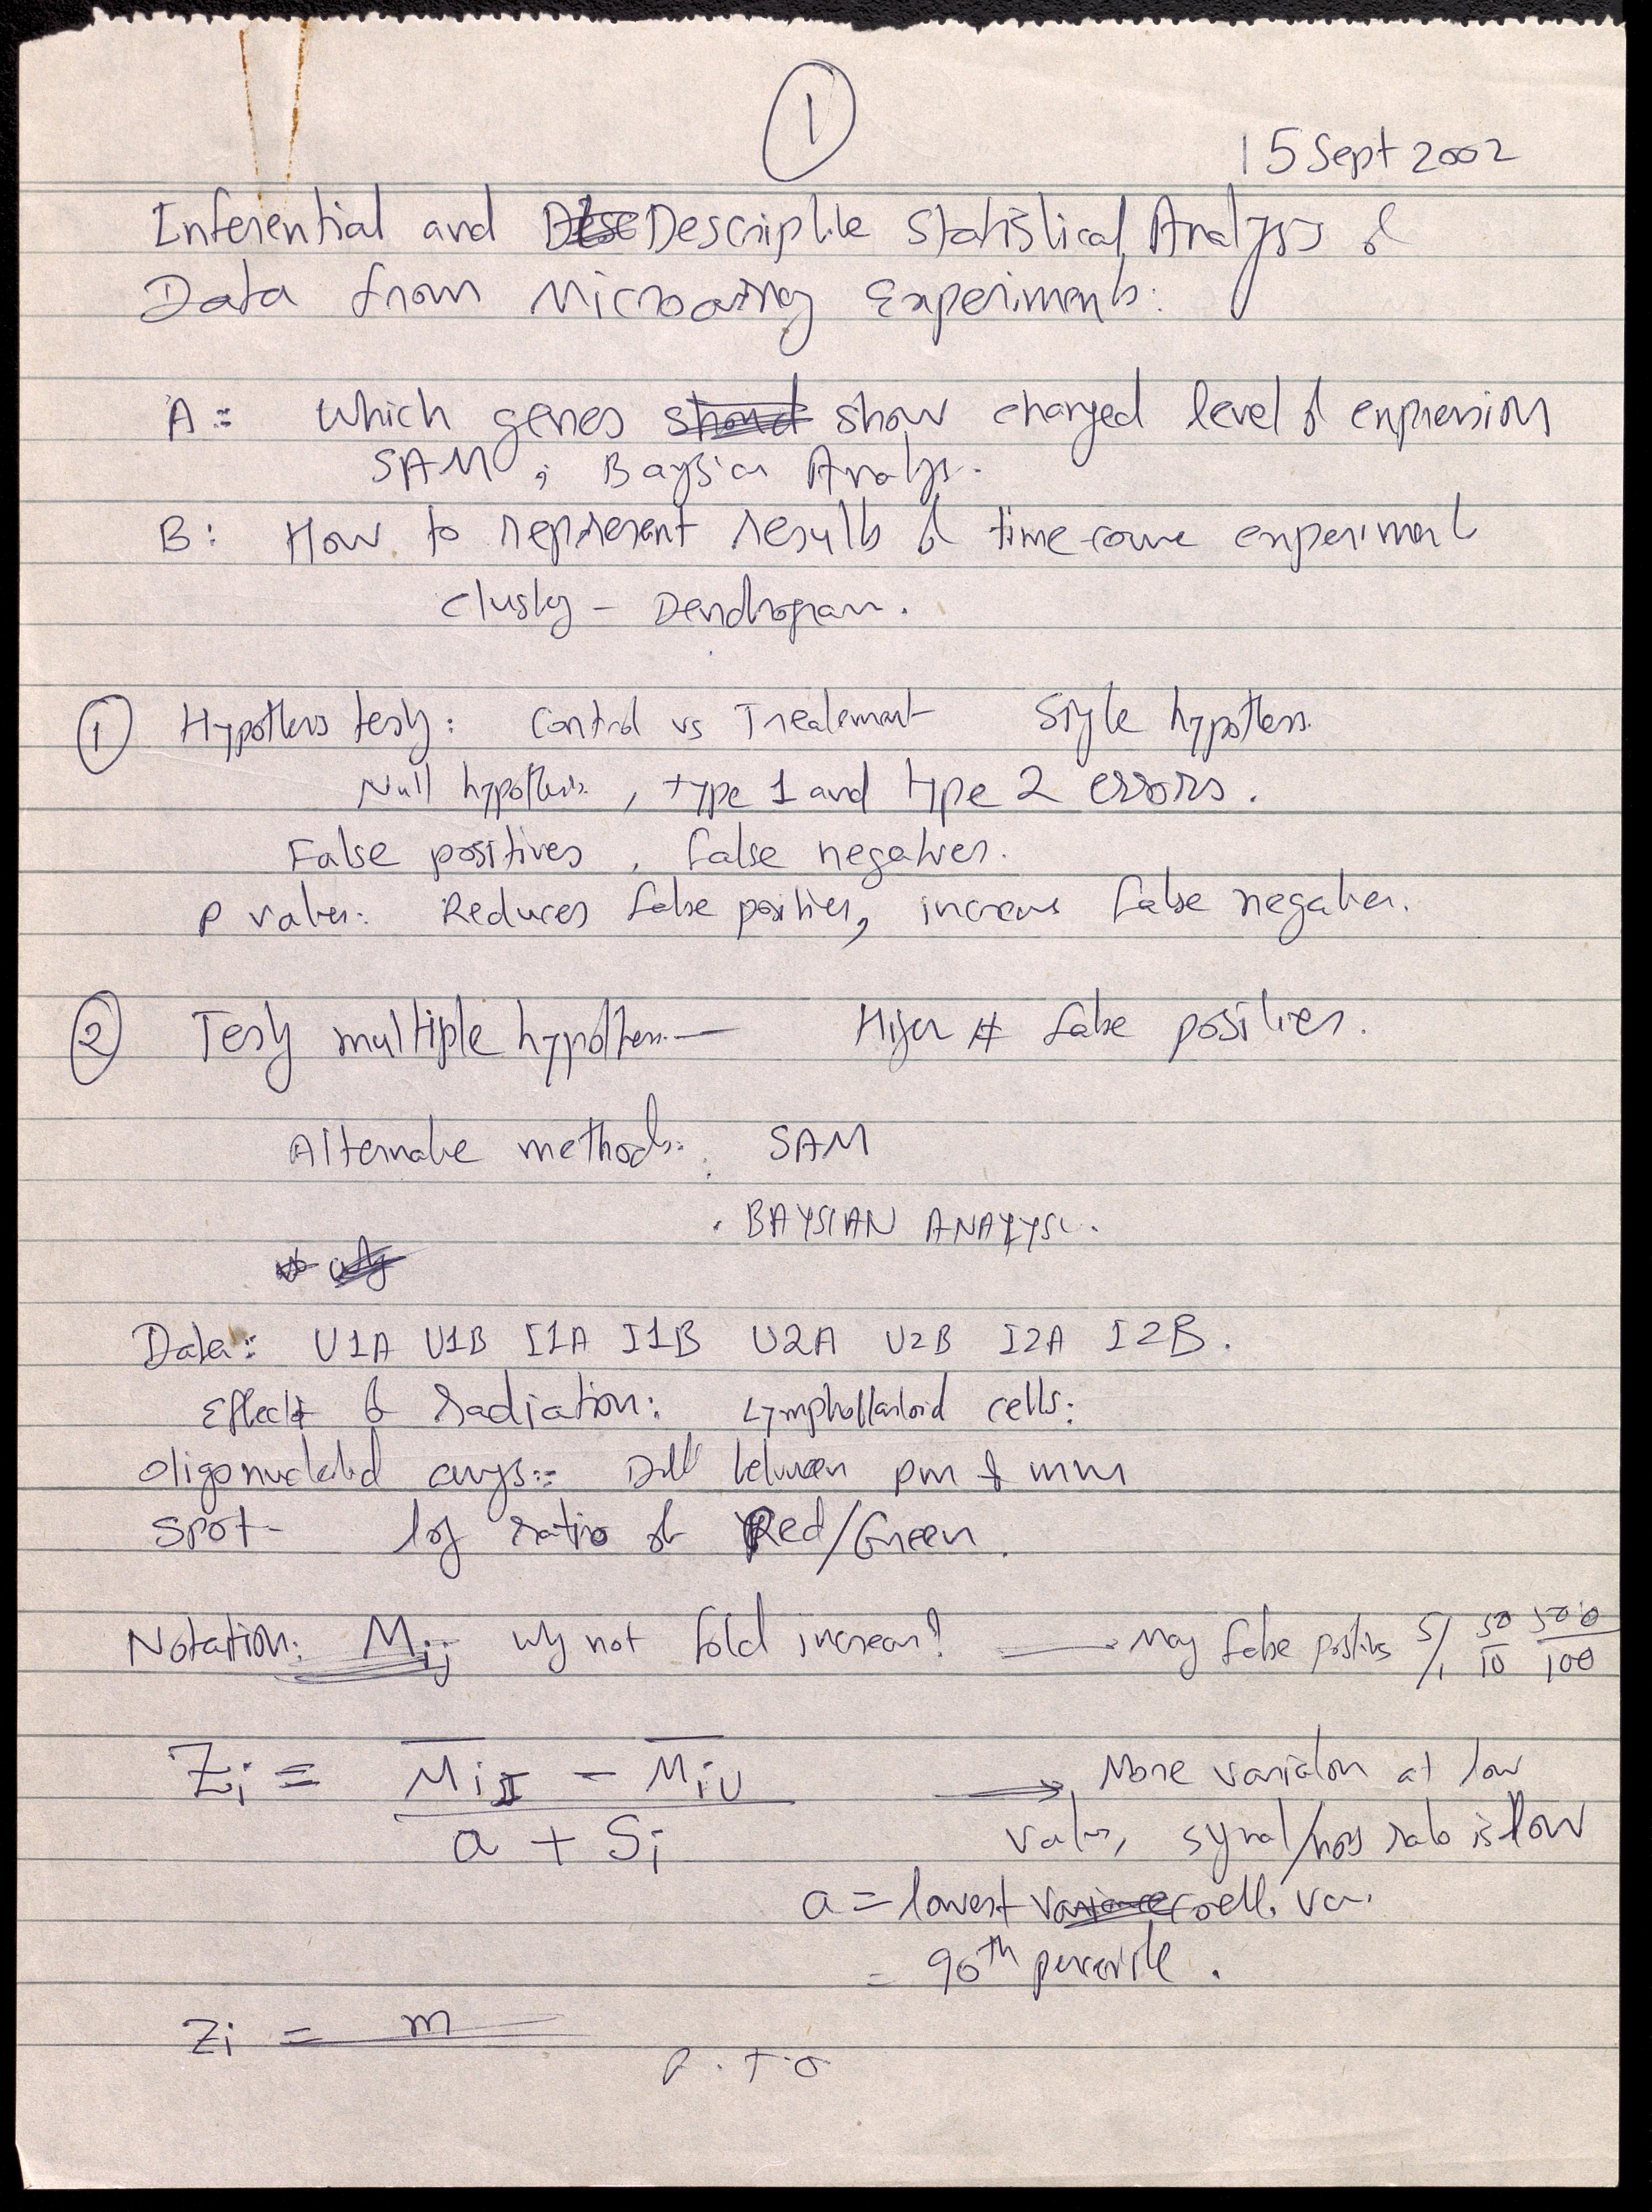 1
15 Sept 2002
Inferential and Descriptive Statistical Analysis of
Data from Microarray Experiments.
A:- Which genes show changed level of expression
SAM, Baysian Analys.
B: How to represent results of time-course experiment
Clustg - Dendrogram.
① Hypothesis testg: Control vs Treatement Single hypothesis.
Null hypothesis, type 1 and type 2 errors.
False positives, false negatives.
p values: Reduces false positives, increase false negatives.
② Testg multiple hypothesis — Higher # false positives.
Alternate methods: SAM
. BAYSIAN ANALYSIS.
Data:- U1A U1B I1A I1B U2A U2B I2A I2B.
Effect of radiation: Lymphoblastoid cells:
Oligonucleotid arrays:- Diff between pm & mm
Spot- log ratio of Red/Green.
Notation: Mij Why not fold increase? — Many false positives 5/1 50/10 500/100
Zi = MiI - MiU / a + Si → More variation at low
values, signal/noise ratio is low
a = lowest coeff. var.
= 90th percentile.
Zi = m
P.T.O